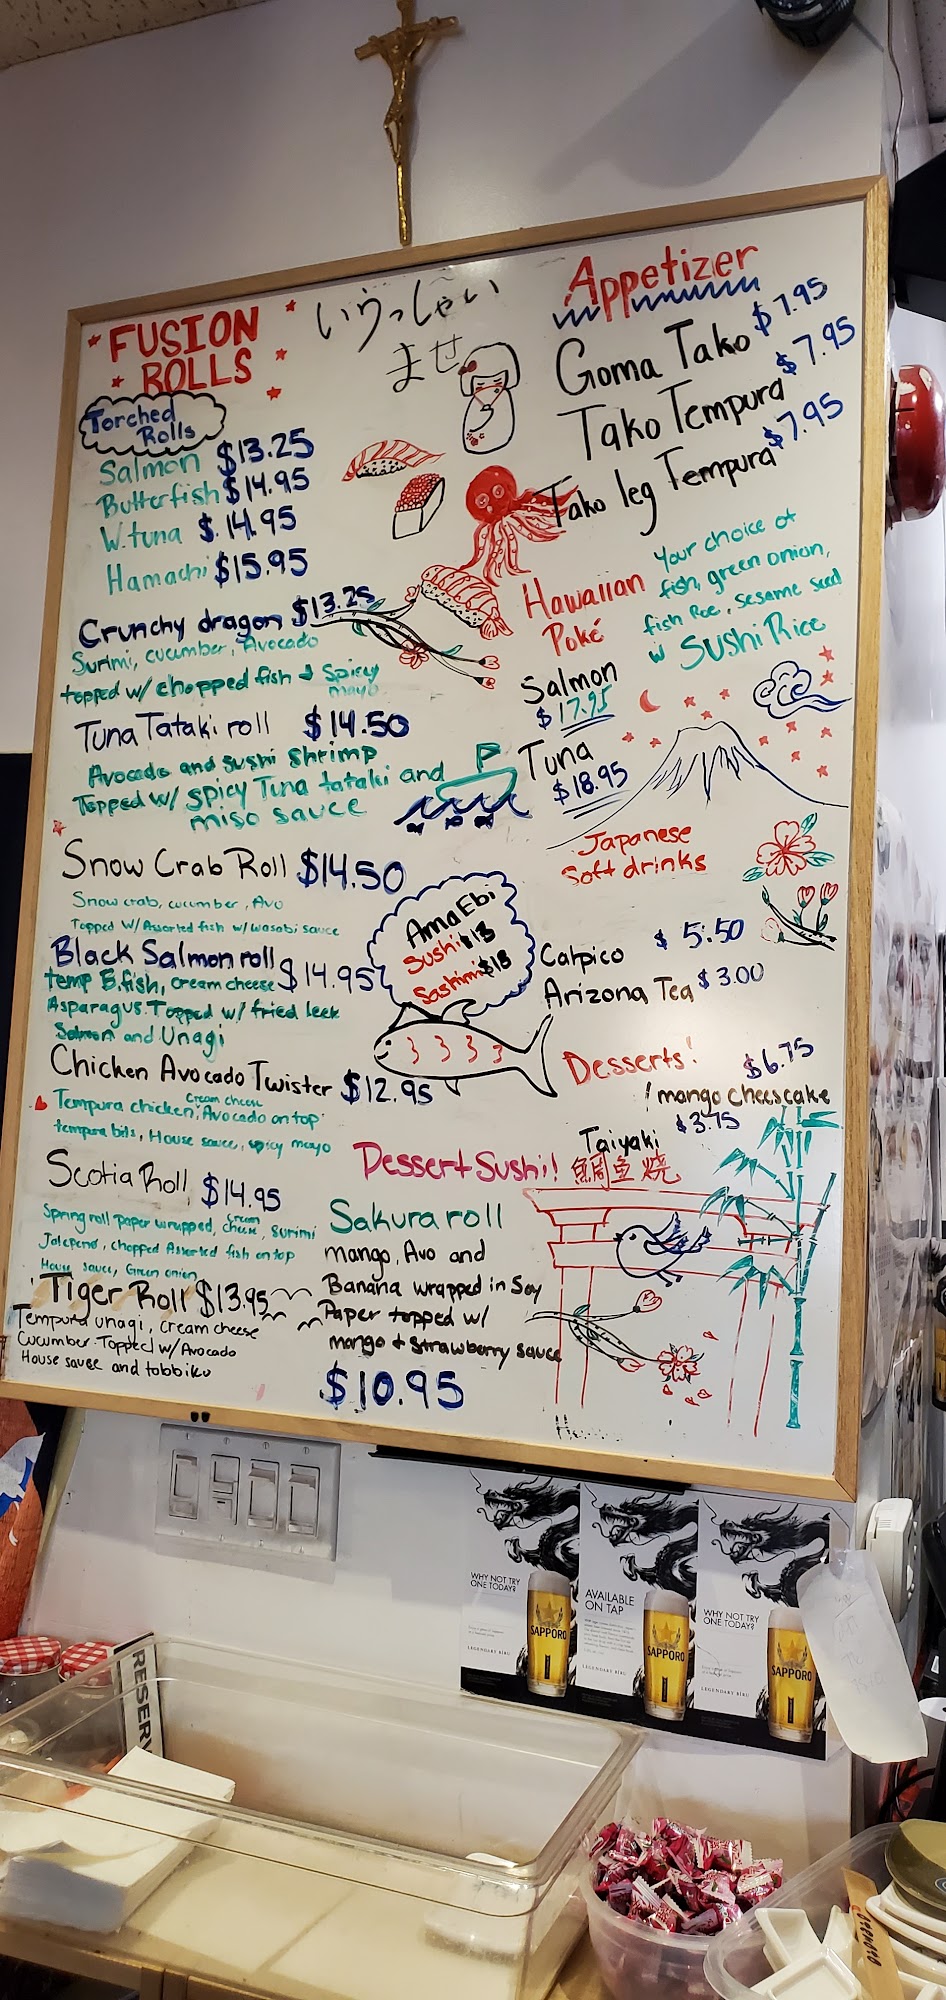 FUSION
ROLLS
いらっしゃい
ませ
Torched
Rolls
Salmon $13.25
Butterfish $14.95
W.tuna $14.95
Hamachi $15.95
Crunchy dragon $13.25
Surimi, cucumber, Avocado
topped w/ chopped fish & Spicy
mayo
Tuna Tataki roll $14.50
Avocado and sushi shrimp
Topped w/ spicy Tuna tataki and
miso sauce
Snow Crab Roll $14.50
Snow crab, cucumber, Avo
Topped W/ Assorted fish w/ wasabi sauce
Black Salmon roll $14.95
temp B.fish, cream cheese
Asparagus. Topped w/ fried leek
Salmon and Unagi
Chicken Avocado Twister $12.95
Cream cheese
Tempura chicken, Avocado on top
tempura bits, House sauce, spicy mayo
Scotia Roll $14.95
Spring roll paper wrapped, cream cheese, surimi
Jalepeno, chopped Assorted fish on top
House sauce, Green onion
Tiger Roll $13.95
Tempura unagi, cream cheese
Cucumber. Topped w/ Avocado
House sauce and tobbiko
Ama Ebi
Sushi $13
Sashimi $18
Dessert Sushi!
Sakura roll
mango, Avo and
Banana wrapped in Soy
Paper topped w/
mango & strawberry sauce
$10.95
Appetizer
Goma Tako $7.95
Tako Tempura $7.95
Tako leg Tempura $7.95
Hawaiian
Poké
Your choice of
fish, green onion,
fish Roe, sesame seed
w Sushi Rice
Salmon
$17.95
Tuna
$18.95
Japanese
Soft drinks
Calpico $5.50
Arizona Tea $3.00
Desserts!
$6.75
mango cheescake
$3.75
Taiyaki
鯛魚燒
WHY NOT TRY
ONE TODAY?
SAPPORO
LEGENDARY BIRU
AVAILABLE
ON TAP
SAPPORO
LEGENDARY BIRU
WHY NOT TRY
ONE TODAY?
SAPPORO
LEGENDARY BIRU
RESERV